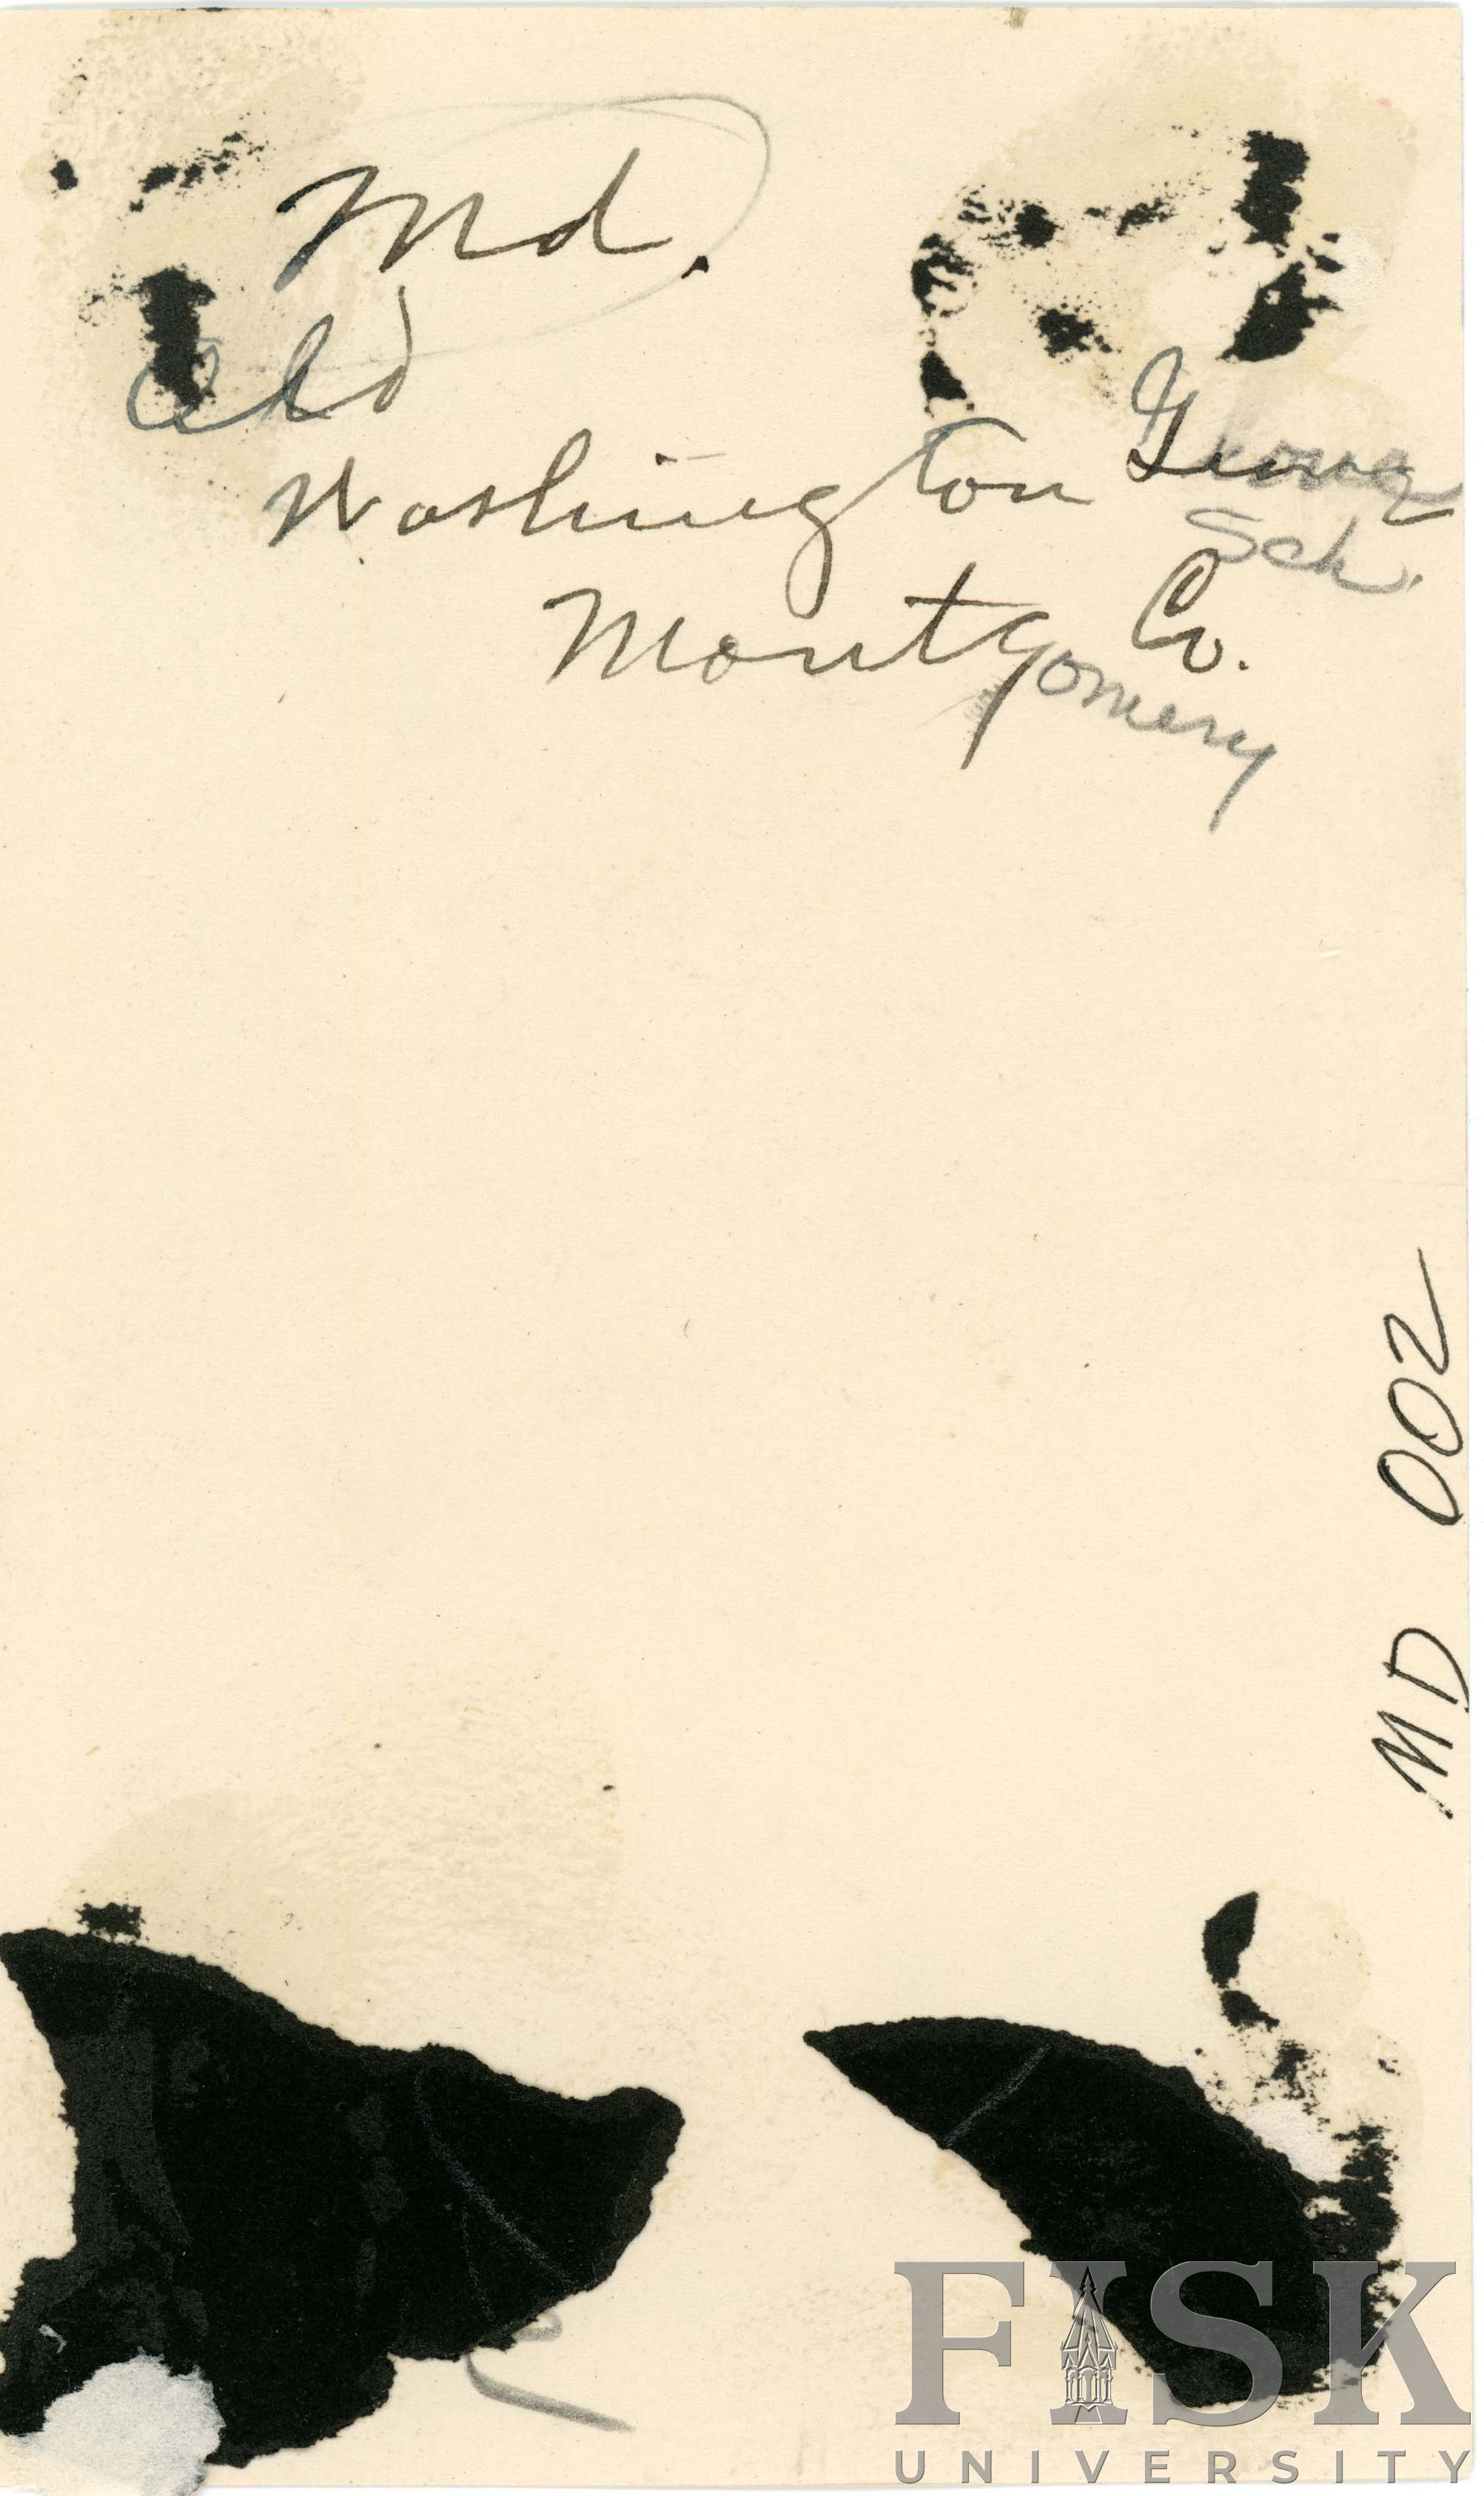 Md.
Old
Washington Grove
Sch.
Montgomery Co.
MD 002
FISK
UNIVERSITY